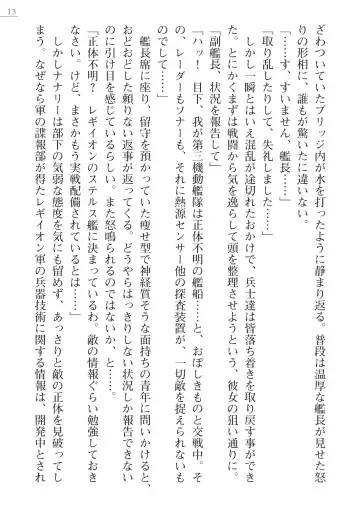 13
ざわついていたブリッジ内が水を打ったように静まり返る。普段は温厚な艦長が見せた怒
りの形相に、誰もが驚いたに違いない。
「……す、すいません、艦長……」
「取り乱したりして、失礼しました……」
しかし一瞬とはいえ混乱が途切れたおかげで、兵士達は皆落ち着きを取り戻す事ができ
た。とにかくまずは戦闘から気を逸らして頭を整理させようという、彼女の狙い通りに。
「副艦長、状況を報告して」
「ハッ！　目下、我が第三機動艦隊は正体不明の艦船……と、おぼしきものと交戦中。そ
の、レーダーもソナーも、それに熱源センサー他の探査装置が、一切敵を捉えられないも
のでして……」
艦長席に座り、留守を預かっていた痩せ型で神経質そうな面持ちの青年に問いかけると、
おどおどした頼りない返事が返ってくる。どうやらはっきりしない状況しか報告できない
のに引け目を感じているらしい。また怒鳴られるのではないか、と……。
「正体不明？　レギイオンのステルス艦に決まっているわ。敵の情報ぐらい勉強しておき
なさい。しかし、まさかもう実戦配備されているとは――」
しかしナナリーは部下の気弱な態度を気にも留めず、あっさりと敵の正体を見破ってし
まう。なぜなら軍の諜報部が得たレギイオン軍の兵器技術に関する情報は、開発中とされ